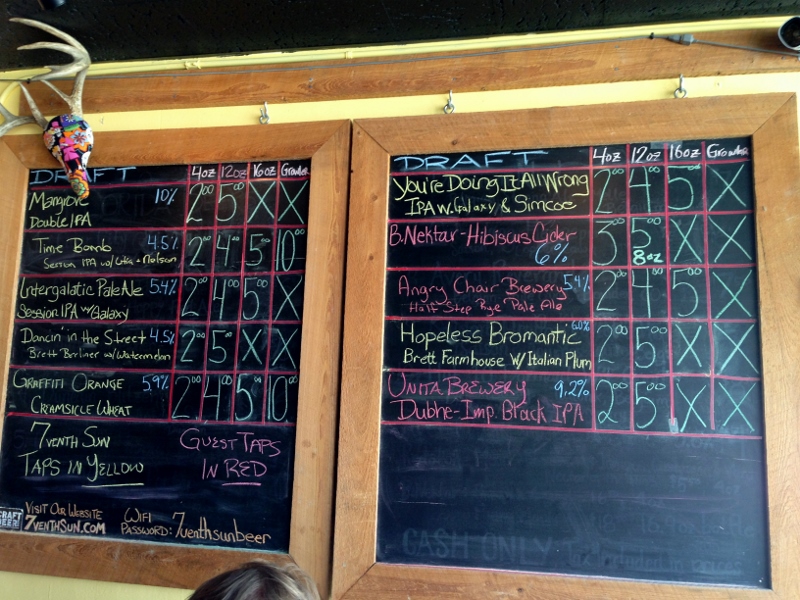 DRAFT 4oz 12oz 16oz Growler
Mangrove 10% 2.00 5.00 X X
Double IPA
Time Bomb 4.5% 2.00 4.00 5.00 10.00
Session IPA w/ + Nelson
Intergalatic Pale Ale 5.4% 2.00 4.00 5.00 X
Session IPA w/ Galaxy
Dancin' in the Street 4.5% 2.00 5.00 X X
Brett Berliner w/ Watermelon
Graffiti Orange 5.9% 2.00 4.00 5.00 10.00
Creamsicle Wheat
7venth Sun
Taps in Yellow
Guest Taps
In Red
CRAFT
BEER
Visit Our Website
7venthSun.com
WiFi
Password: 7venthsunbeer
DRAFT 4oz 12oz 16oz Growler
You're Doing It All Wrong 2.00 4.00 5.00 X
IPA w. Galaxy & Simcoe
B. Nektar - Hibiscus Cider 3.00 5.00 X X
6% 8oz
Angry Chair Brewery 5.4% 2.00 4.00 5.00 X
Half Step Rye Pale Ale
Hopeless Bromantic 6.0% 2.00 5.00 X X
Brett Farmhouse w/ Italian Plum
Unita Brewery 9.2% 2.00 5.00 X X
Dubhe-Imp. Black IPA
CASH ONLY